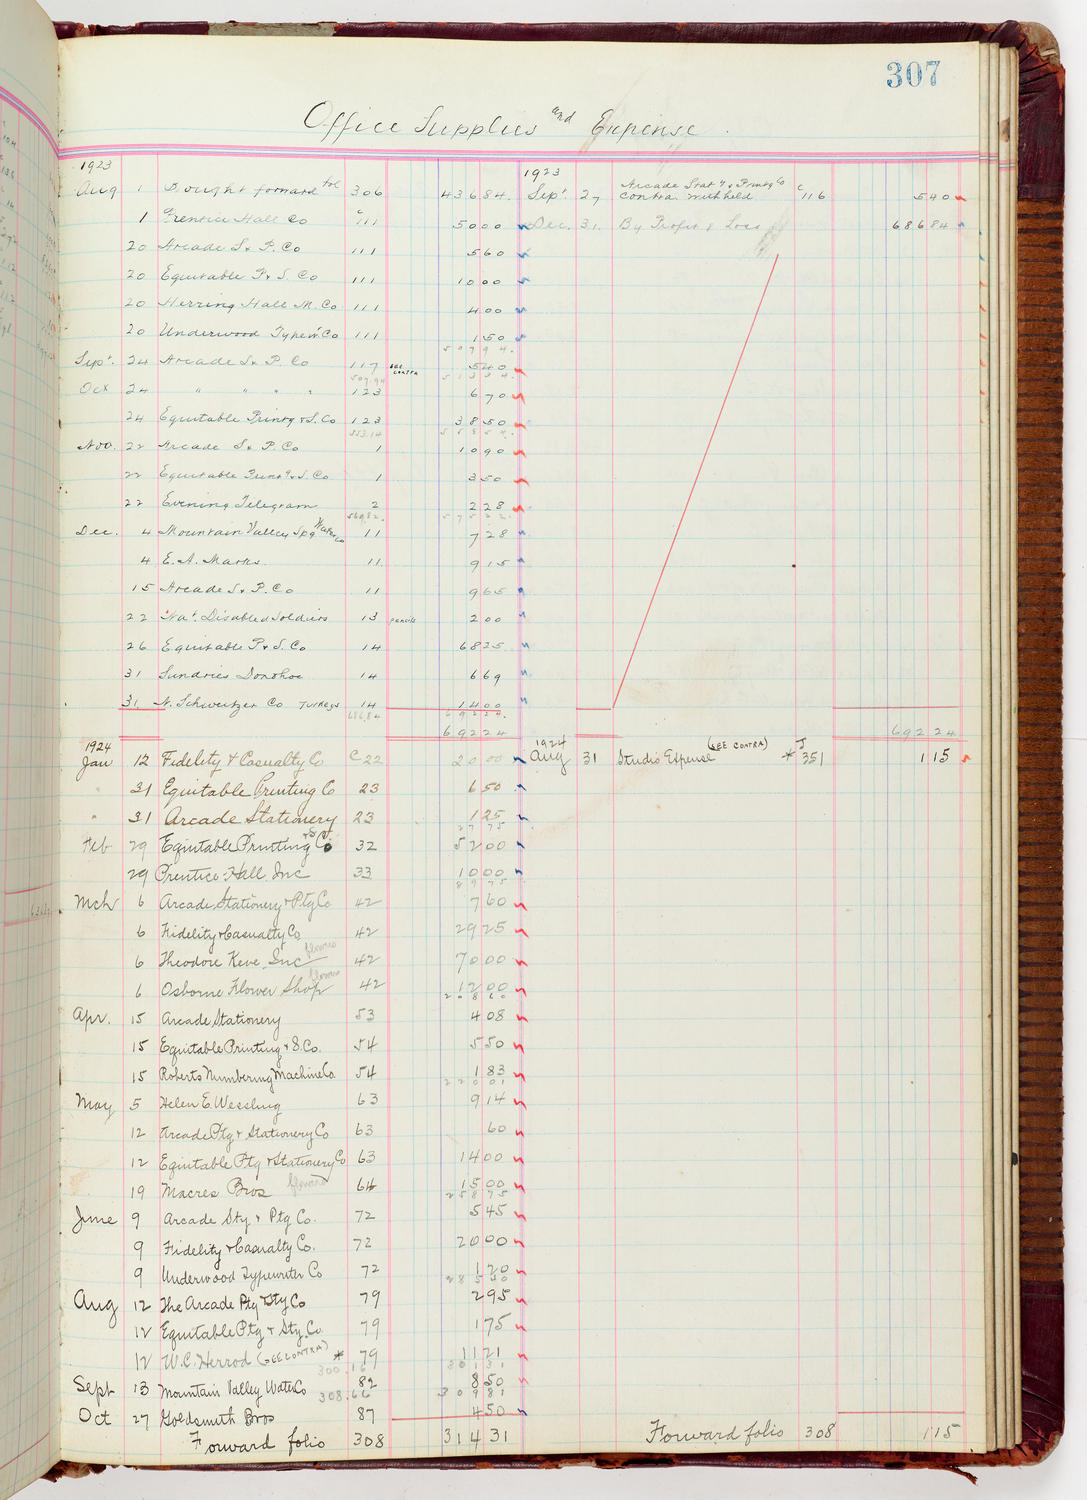 307
Office Supplies and Expense
1923
Aug 1 Bought forward fol 306 436 84.
1 Prentice Hall Co C 111 50 00
20 Arcade S. & P. Co 111 5 60
20 Equitable P. & S. Co 111 10 00
20 Herring Hall M. Co 111 4 00
20 Underwood Typew. Co 111 1 50
507 94.
Sept. 24 Arcade S & P. Co 117 SEE CONTRA 5 40
507.94 513 34.
Oct 24 " " " " 123 6 70
24 Equitable Printg & S. Co 123 38 50
553.14 558 54.
Nov. 22 Arcade S. & P. Co 1 10 90
22 Equitable Print'g & S. Co 1 3 50
22 Evening Telegram 2 2 28
569.82. 575 22.
Dec. 4 Mountain Valley Spg Water Co 11 7 28
4 E. A. Marks. 11 9 15
15 Arcade S. & P. Co 11 9 65
22 Nat. Disabled Soldiers 13 pencils 2 00
26 Equitable P. & S. Co 14 68 25
31 Sundries Donohoe 14 6 69
31 N. Schweitzer Co Turkeys 14 14 00
686.84 692 24.
692 24
1924
Jan 12 Fidelity & Casualty Co C 22 20 00
31 Equitable Printing Co 23 6 50
" 31 Arcade Stationery 23 1 25
27 75
Feb 29 Equitable Printing & S Co 32 52 00
29 Prentice-Hall, Inc 33 10 00
89 75
Mch 6 Arcade Stationery & Ptg Co 42 7 60
6 Fidelity & Casualty Co. 42 29 25
6 Theodore Keve, Inc flowers 42 70 00
6 Osborne Flower Shop flowers 42 12 00
208 60
Apr. 15 Arcade Stationery 53 4 08
15 Equitable Printing & S. Co. 54 5 50
15 Roberts Numbering Machine Co. 54 1 83
220 01
May 5 Helen E. Wessling 63 9 14
12 Arcade Ptg & Stationery Co 63 60
12 Equitable Ptg & Stationery Co 63 14 00
19 Macres Bros flowers 64 15 00
258 75
June 9 Arcade Sty & Ptg Co. 72 5 45
9 Fidelity & Casualty Co. 72 20 00
9 Underwood Typewriter Co 72 1 20
285 40
Aug 12 The Arcade Ptg & Sty Co 79 2 95
12 Equitable Ptg & Sty. Co. 79 1 75
12 W. C. Herrod (SEE CONTRA) * 79 11 21
300.16 301 31
Sept 13 Mountain Valley Water Co 82 8 50
308.66 309 81
Oct 27 Goldsmith Bros 87 4 50
Forward folio 308 314 31
1923
Sept 27 Arcade Stat'y & Printg Co contra withheld C 116 5 40
Dec. 31. By Profit & Loss 686 84
692 24
1924
Aug 31 Studio Expense (SEE CONTRA) * J 351 1 15
Forward folio 308 1 15